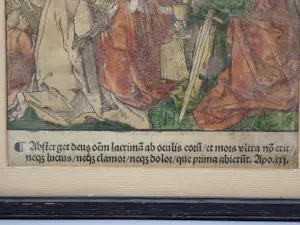 ¶ Abſterget deus oēm lacrimā ab oculis eorū/et mors vltra nō erit/
neqꝫ luctus/neqꝫ clamor/neqꝫ dolor/que prima abierūt. Apo.xxi.